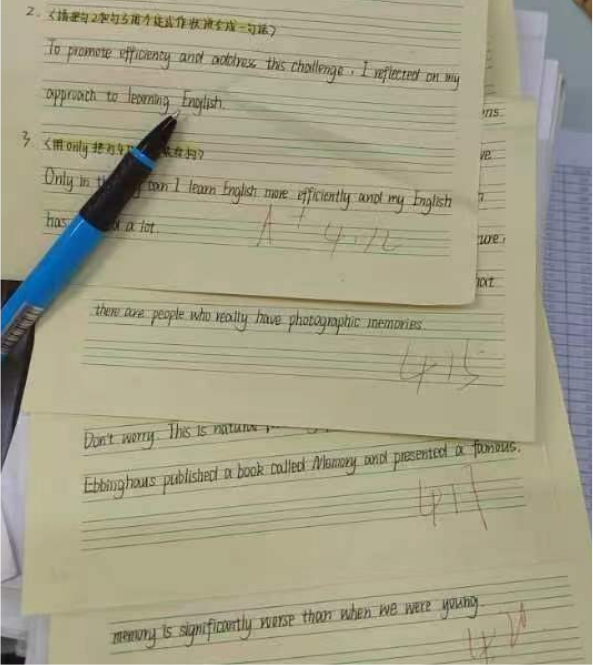 2. 〈请把句2和句3用个连或作状语合成一句话〉
To promote efficiency and address this challenge, I reflected on my
approach to learning English.
3. 〈用only把句
Only in can I learn English more efficiently and my English
has a lot.
A+ 4.12
ns.
ve
ture,
hort
there are people who really have photographic memories.
4.15
Don't worry. This is natural
Ebbinghaus published a book called Memory and presented a famous.
4.17
memory is significantly worse than when we were young.